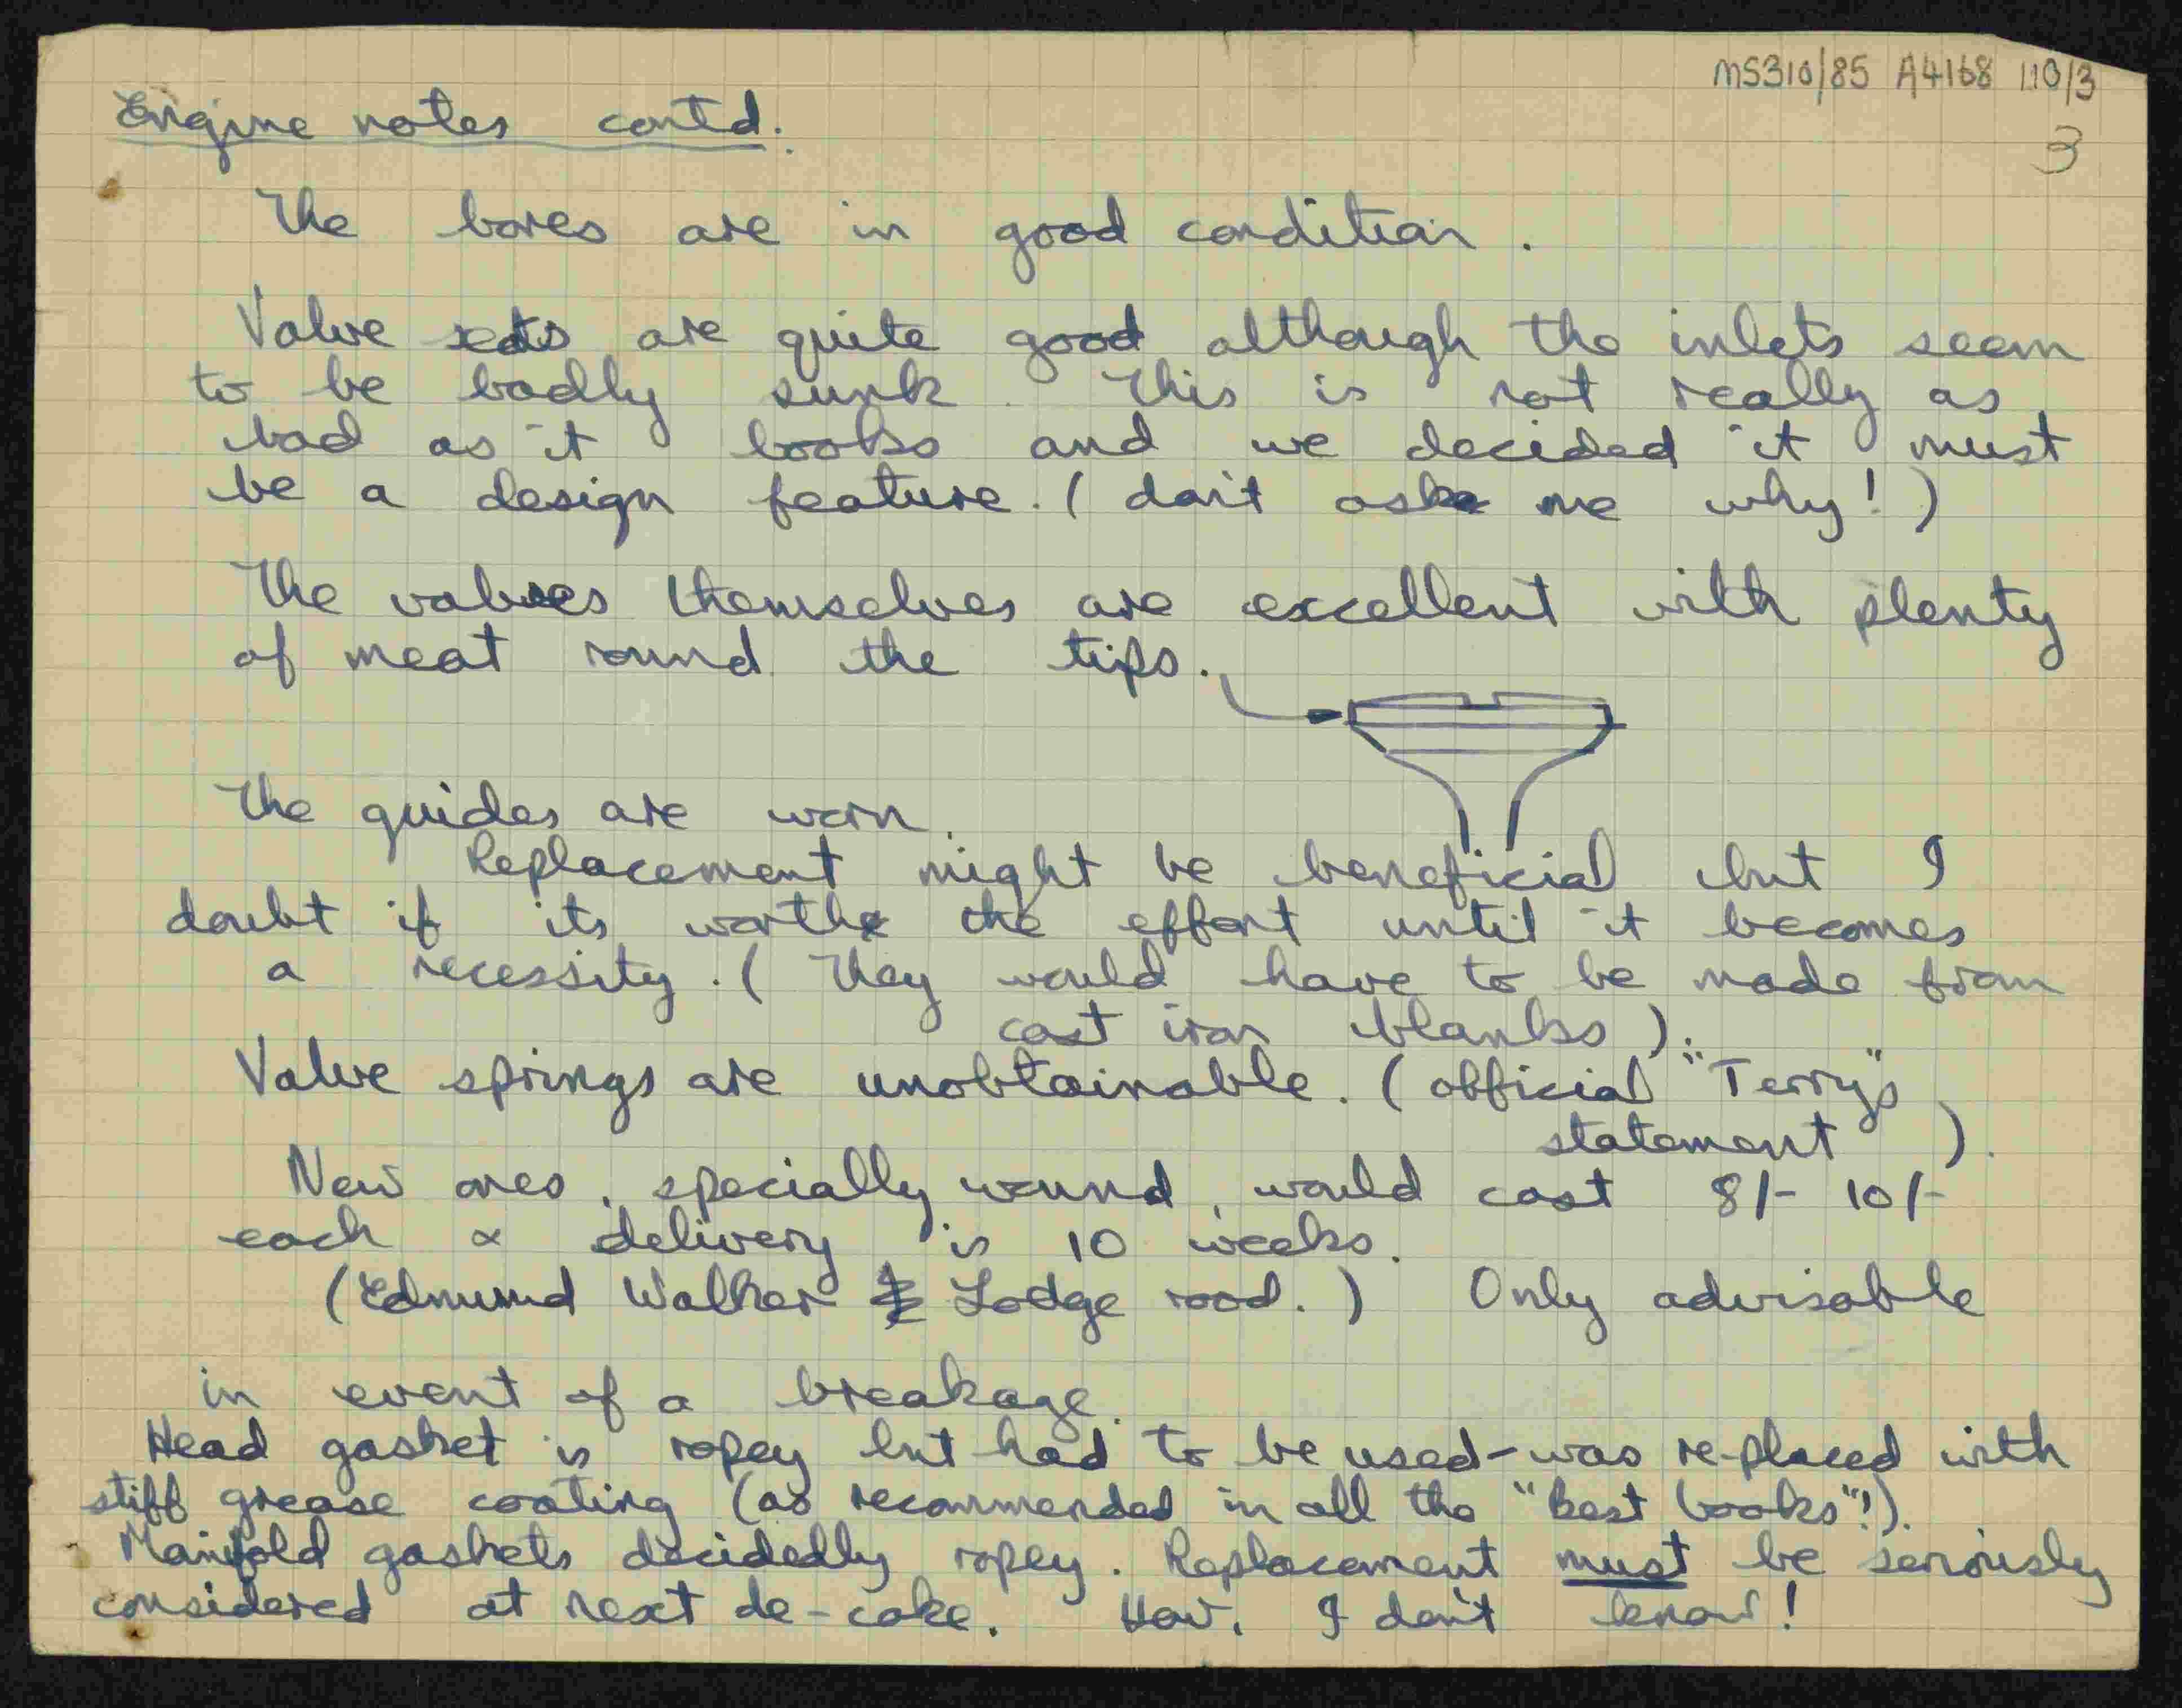 MS310/85 A4168 110/3
3
Engine notes contd.
The bores are in good condition.
Valve seats are quite good although the inlets seem
to be badly sunk. This is not really as
bad as it looks and we decided it must
be a design feature. (don't ask me why!)
The valves themselves are excellent with plenty
of meat round the tips.
The guides are worn.
Replacement might be beneficial but I
doubt if its worth the effort until it becomes
a necessity. (They would have to be made from
cast iron blanks).
Valve springs are unobtainable. (official "Terry's"
statement).
New ones, specially wound, would cost 8/- 10/-
each & delivery is 10 weeks.
(Edmund Walker Lodge road.) Only advisable
in event of a breakage.
Head gasket is ropey but had to be used - was re-placed with
stiff grease coating (as recommended in all the "best books"!).
Manifold gaskets decidedly ropey. Replacement must be seriously
considered at next de-coke. How, I don't know!